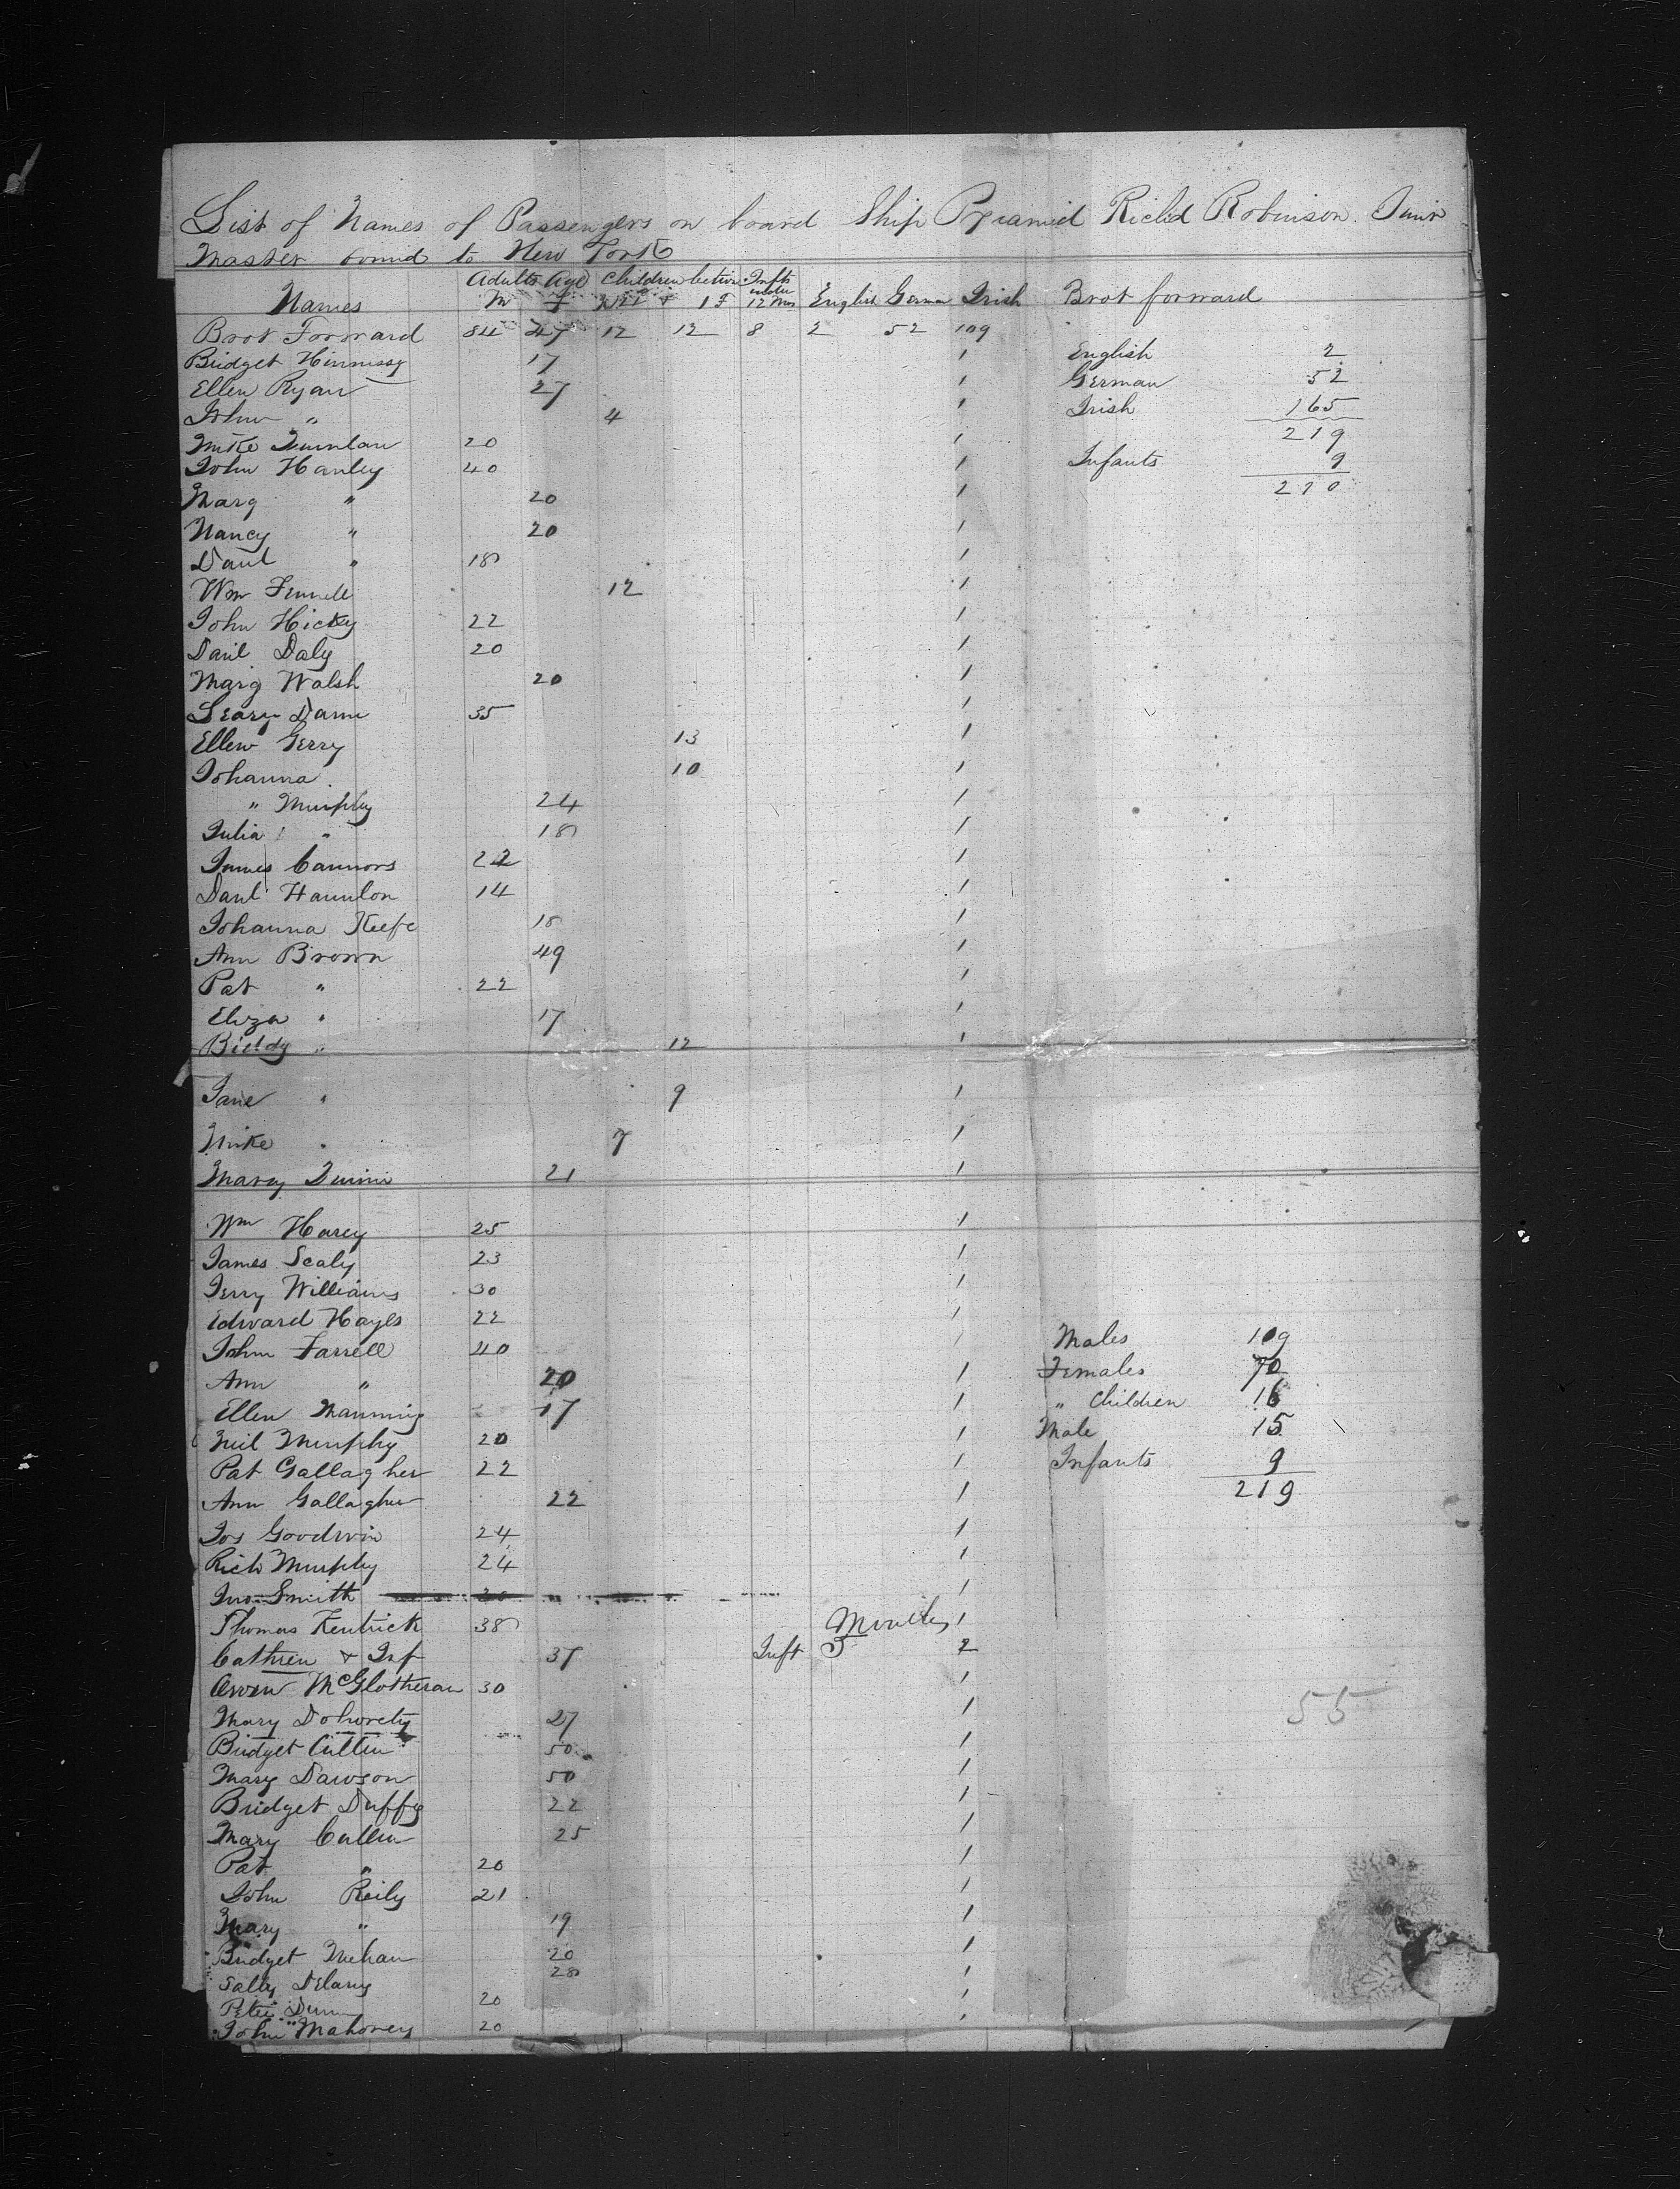 List of Names of Passengers on board Ship Pyramid Richd Robinson Junr
Master bound to New York
Names Adults Age Children Infts under 12 Mos English German Irish Brot forward
M F 1 F
Brot Forward 84 47 12 12 8 2 52 109
Bridget Hinnessy 17 1 English 2
Ellen Ryan 27 1 German 52
John " 4 1 Irish 165
219
Mike Quinlan 20 1
John Hanley 40 1 Infants 9
210
Marg " 20 1
Nancy " 20 1
Danl " 18 1
Wm Fennell 12 1
John Hicky 22 1
Danl Daly 20 1
Marg Walsh 20 1
Leary 35 1
Ellen Gerry 13 1
Johanna 10 1
" Murphy 24 1
Julia " 18 1
James Cannors 22 1
Danl 14 1
Johanna Keefe 18 1
Ann Brown 49 1
Pat " 22 1
Eliza " 17 1
Biddy " 12 1
Jane " 9 1
Mike " 7 1
Mary 21 1
Wm Harey 25 1
James Scaly 23 1
Jerry Williams 30 1
Edward Hayes 22 1
John Farrell 40 1 Males 109
Ann " 20 1 Females 70
Ellen Manning 17 1 " Children 16
Neil Murphy 20 1 Male 15
Pat Gallagher 22 1 Infants 9
Ann Gallagher 22 1 219
Jos Goodwin 24 1
Rich Murphy 24 1
Jno Smith 1
Thomas Kentrick 38 Months 1
Cathren & Inf 37 Inft 5 2
Owen McGlotheran 30 1
Mary Dohorety 27 1
55
Bridget Cullen 50 1
Mary Dawson 50 1
Bridget Duffy 22 1
Mary Cullen 25 1
Pat " 20 1
John Reily 21 1
Mary " 19 1
Bridget Mehan 20 1
Sally Delany 28 1
Peter Dunn 20 1
John Mahoney 20 1